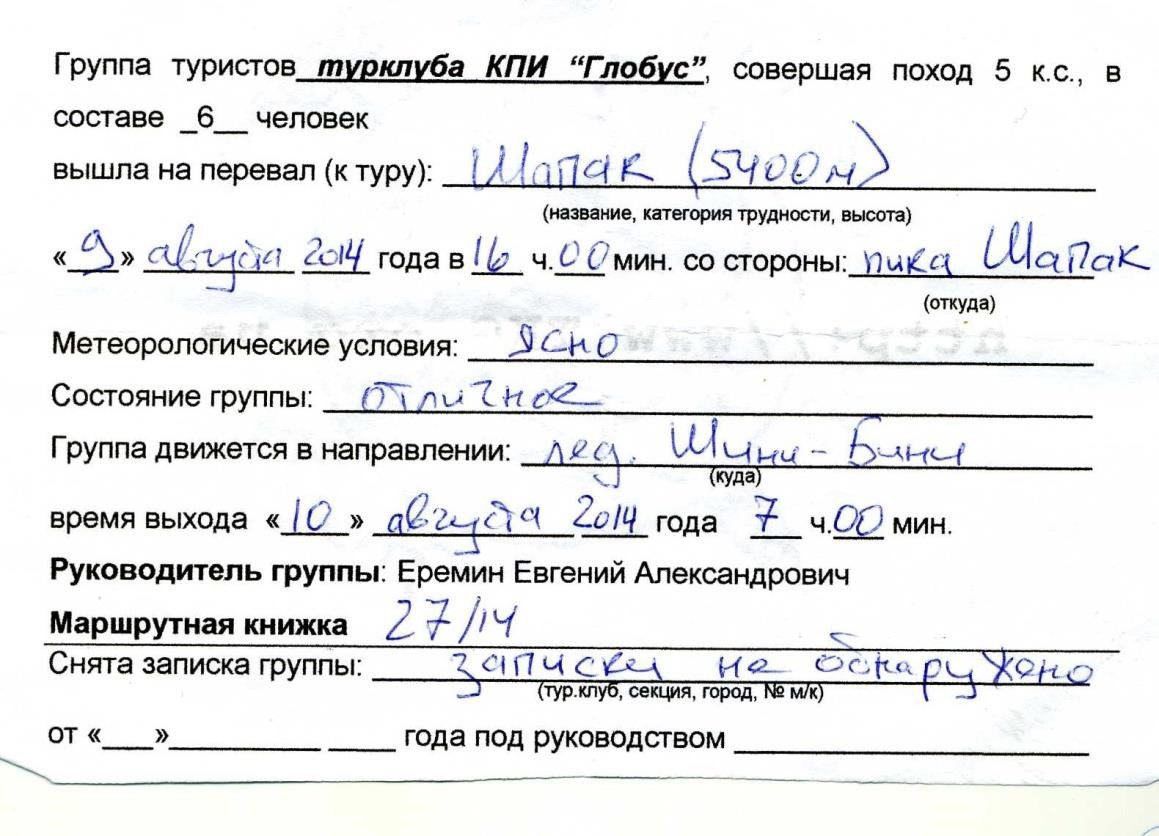 Группа туристов турклуба КПИ “Глобус”, совершая поход 5 к.с., в
составе _6__ человек
вышла на перевал (к туру): Шапак (5400м)
(название, категория трудности, высота)
«9» августа 2014 года в 16 ч.00 мин. со стороны: пика Шапак
(откуда)
Метеорологические условия: Ясно
Состояние группы: отличное
Группа движется в направлении: лед. Шини-Бини
(куда)
время выхода «10» августа 2014 года 7 ч.00 мин.
Руководитель группы: Еремин Евгений Александрович
Маршрутная книжка 27/14
Снята записка группы: записки не обнаружено
(тур.клуб, секция, город, № м/к)
от «___»__________ ____ года под руководством ____________________